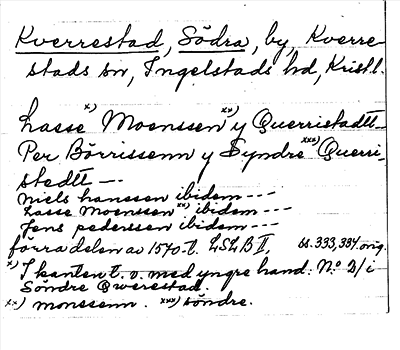 Kverrestad, Södra, by, Kverre-
stads sn, Ingelstads hd, Kristl.
Lasse x) Moenssen xx) y Querristadtt
Per Börrissenn y Syndre xxx) Querri-
stedtt —
Niels hanssen ibidem ---
Lasse Moenssen xx) ibidem ---
Jens pederssen ibidem ---
förra delen av 1570-t. LSLB II, bl. 333, 334 orig.
x) I kanten t. v. med yngre hand: No 2/ i
Söndre Qwerestad.
xx) monssenn. xxx) söndre.